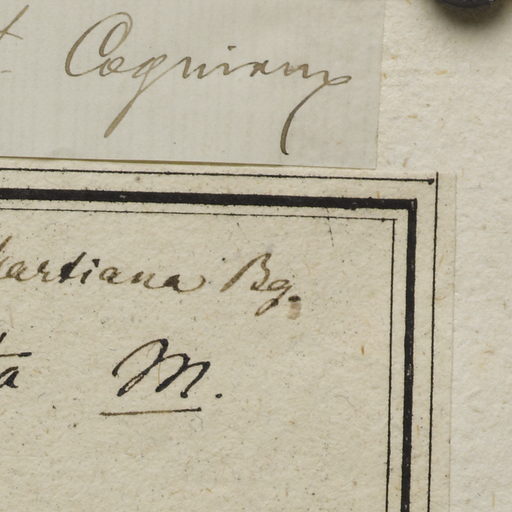 Cogniaux
artiana Bg.
ta M.